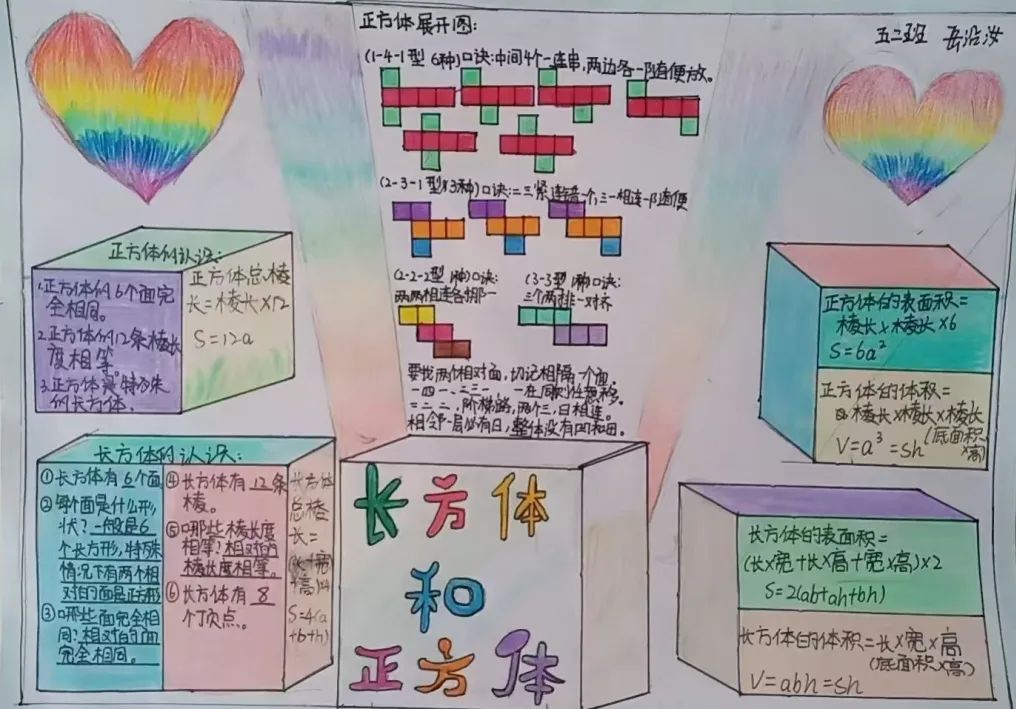 正方体展开图：
五二班
(1-4-1型 6种)口诀：中间4个一连串，两边各一随便放。
(2-3-1型 3种)口诀：二三紧连错一个，三一相连一随便
(2-2-2型 1种)口诀：
两两相连各错一
(3-3型 1种)口诀：
三个两排一对齐
要找两个相对面，切记相隔一个面，
二二二，阶梯路，两个三，日相连。
相邻一层必有日，整体没有凹和田。
正方体的认识：
1.正方体的6个面完
全相同。
2.正方体的12条棱长
度相等。
3.正方体是特殊
的长方体.
正方体总棱
长=棱长×12
S=12a
长方体的认识：
①长方体有6个面
②每个面是什么形
状？一般是6
个长方形，特殊
情况下有两个相
对的面是正方形
③哪些面完全相
同？相对的面
完全相同。
④长方体有12条
棱。
⑤哪些棱长度
相等？相对的
棱长度相等。
⑥长方体有 8
个顶点。
长方体
总棱
长=
(长+宽
+高)×4
S=4(a
+b+h)
长方体
和
正方体
正方体的表面积=
棱长×棱长×6
S=6a²
正方体的体积=
棱长×棱长×棱长
(底面积
×高)
V=a³=sh
长方体的表面积=
(长×宽+长×高+宽×高)×2
S=2(ab+ah+bh)
长方体的体积=长×宽×高
(底面积×高)
V=abh=sh